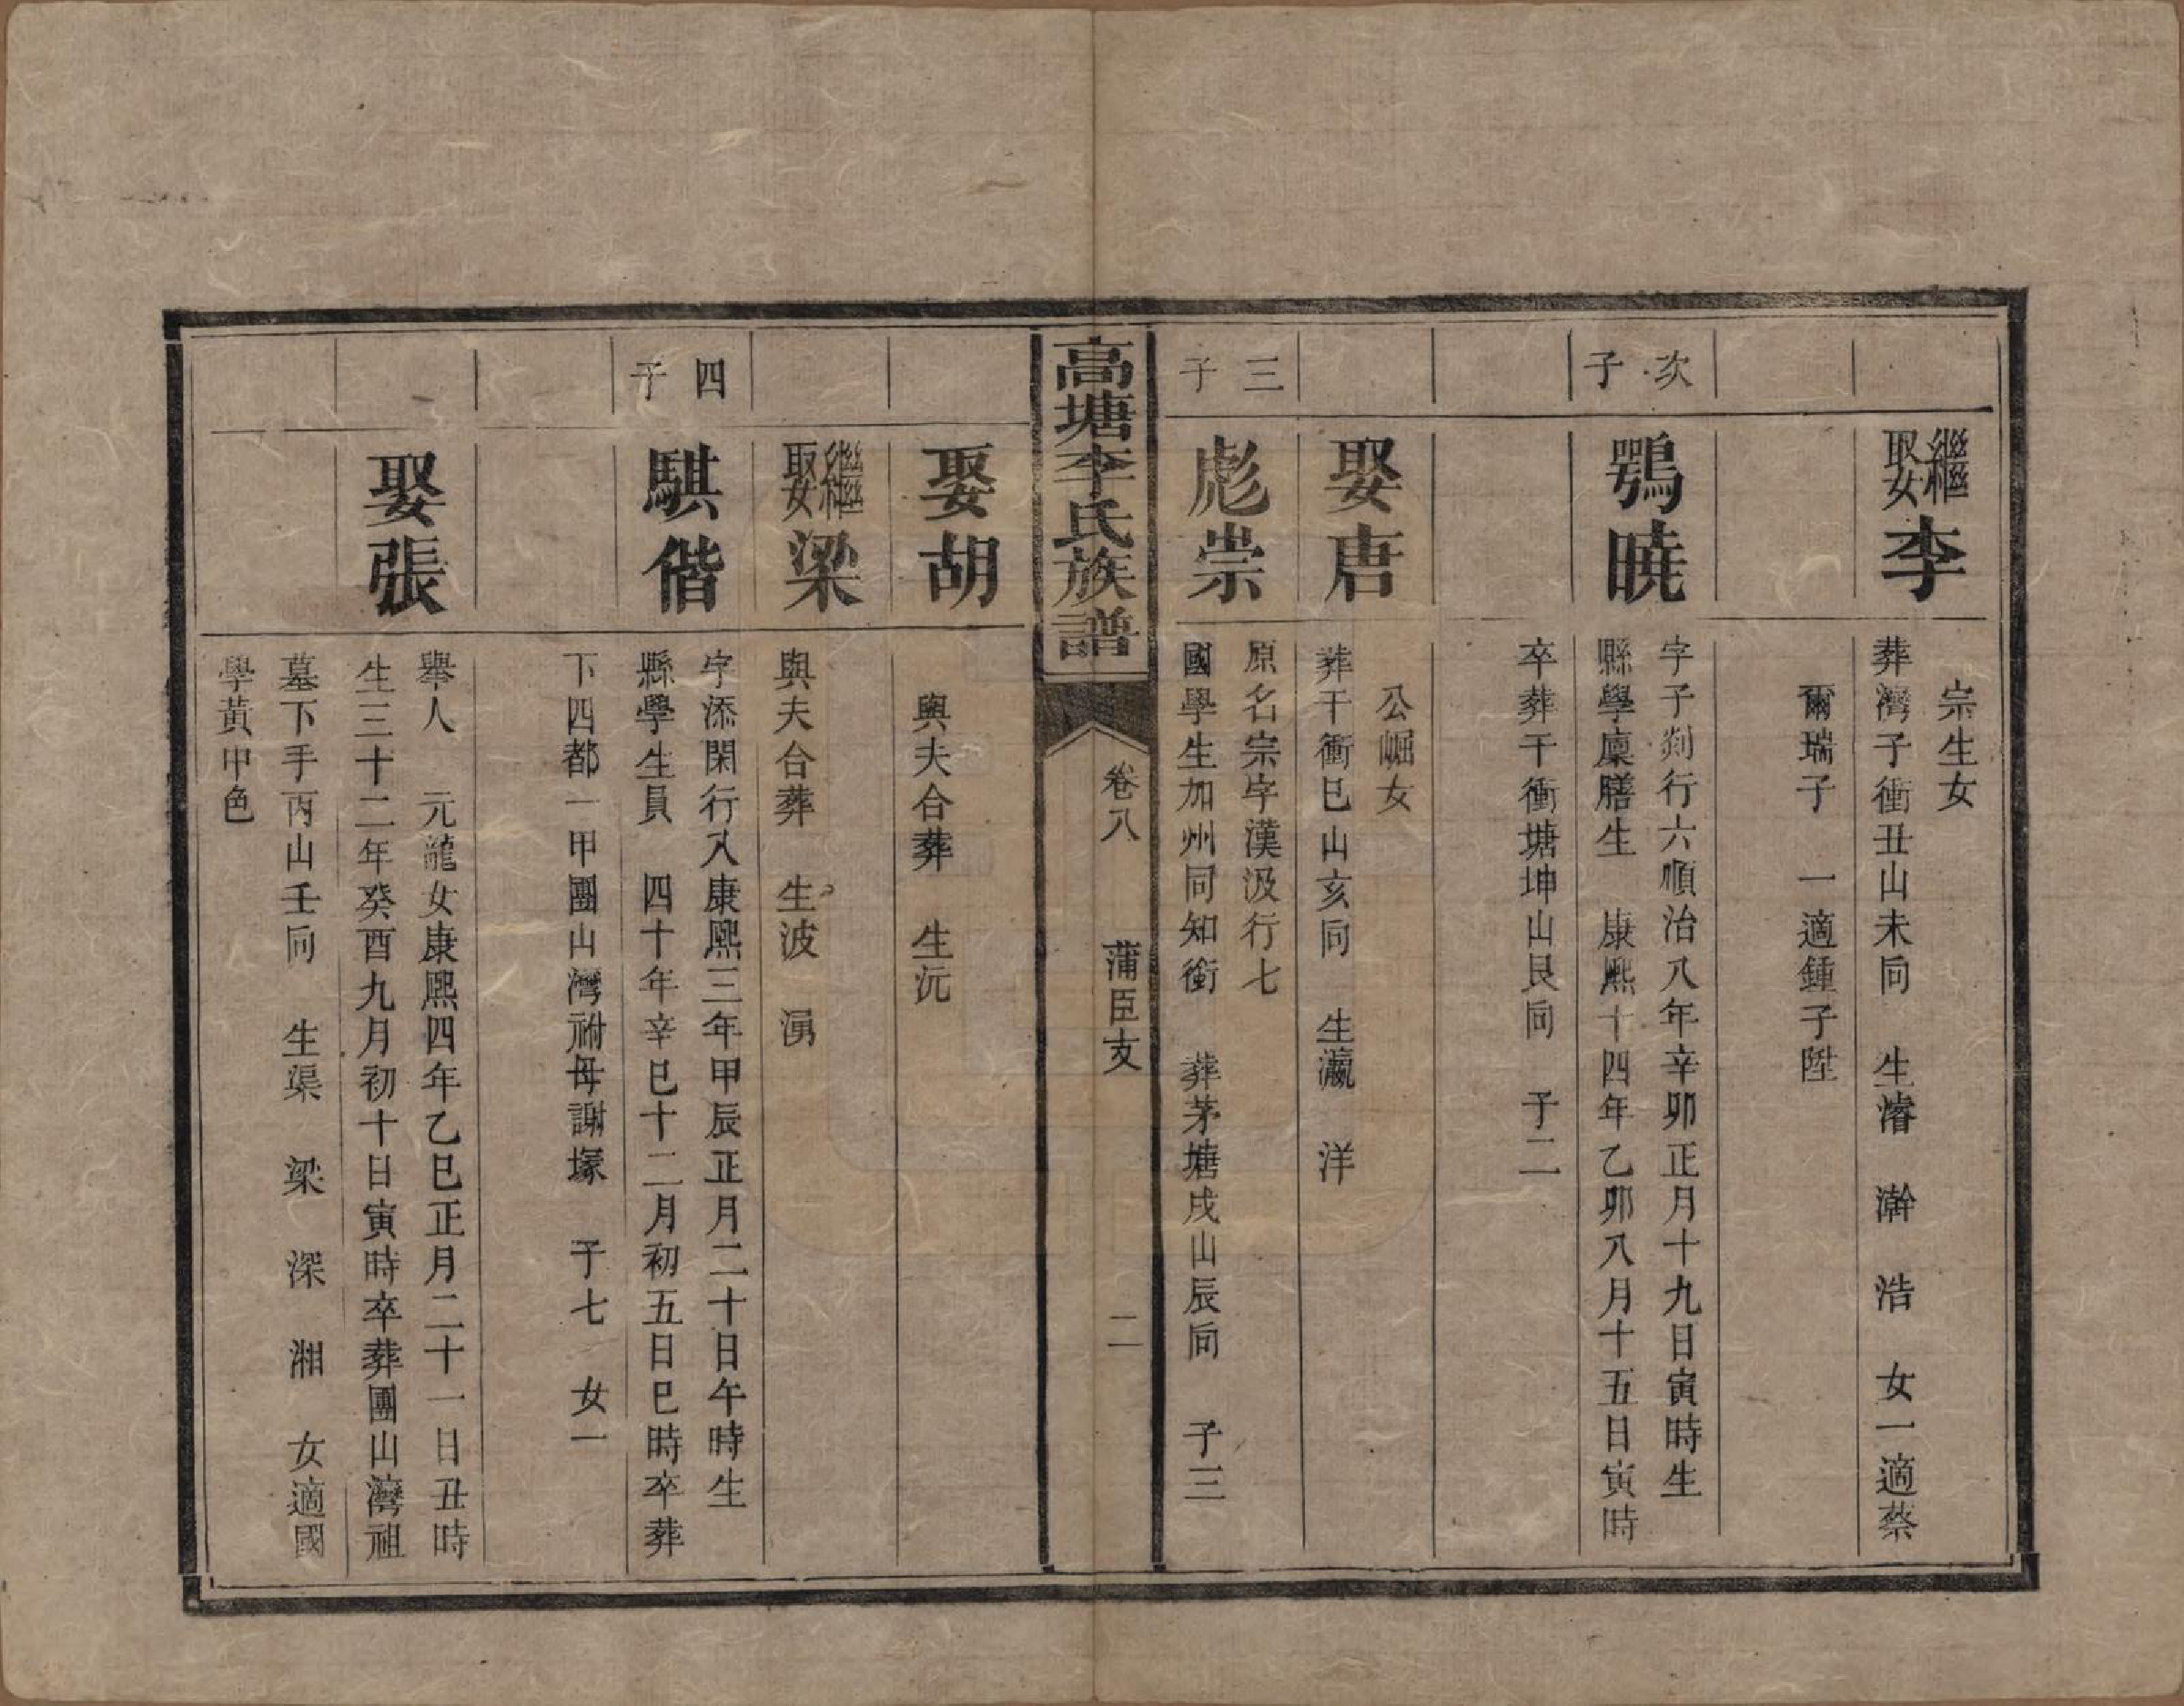 繼娶李
宗生女
葬灣子衝丑山未向　生濬　瀚　浩　女一適蔡
爾瑞子　一適鍾子陞
次子
鶚曉
字子剡行六順治八年辛卯正月十九日寅時生
縣學廩膳生　康熙十四年乙卯八月十五日寅時
卒葬干衝塘坤山艮向　子二
娶唐
公崛女
葬干衝巳山亥向　生瀛　洋
三子
彪崇
原名宗字漢汲行七
國學生加州同知銜　葬茅塘戌山辰向　子三
高塘李氏族譜
卷八　蒲臣支　二
娶胡
與夫合葬　生沅
繼娶梁
與夫合葬　生波　湧
四子
騏偕
字添閑行八康熙三年甲辰正月二十日午時生
縣學生員　四十年辛巳十二月初五日巳時卒葬
下四都一甲團山灣祔母謝塚　子七　女一
娶張
舉人　元龍女康熙四年乙巳正月二十一日丑時
生三十二年癸酉九月初十日寅時卒葬團山灣祖
墓下手丙山壬向　生渠　梁　深　湘　女適國
學黃中色